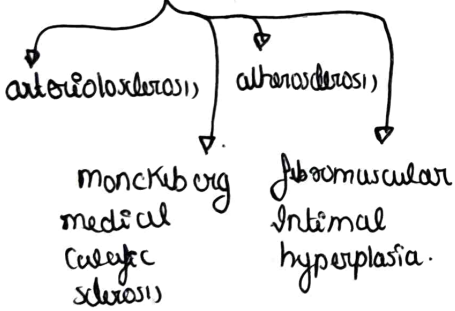 arteriolosclerosis,
atherosclerosis,
monckeberg
medical
calcific
sclerosis,
fibromuscular
Intimal
hyperplasia.